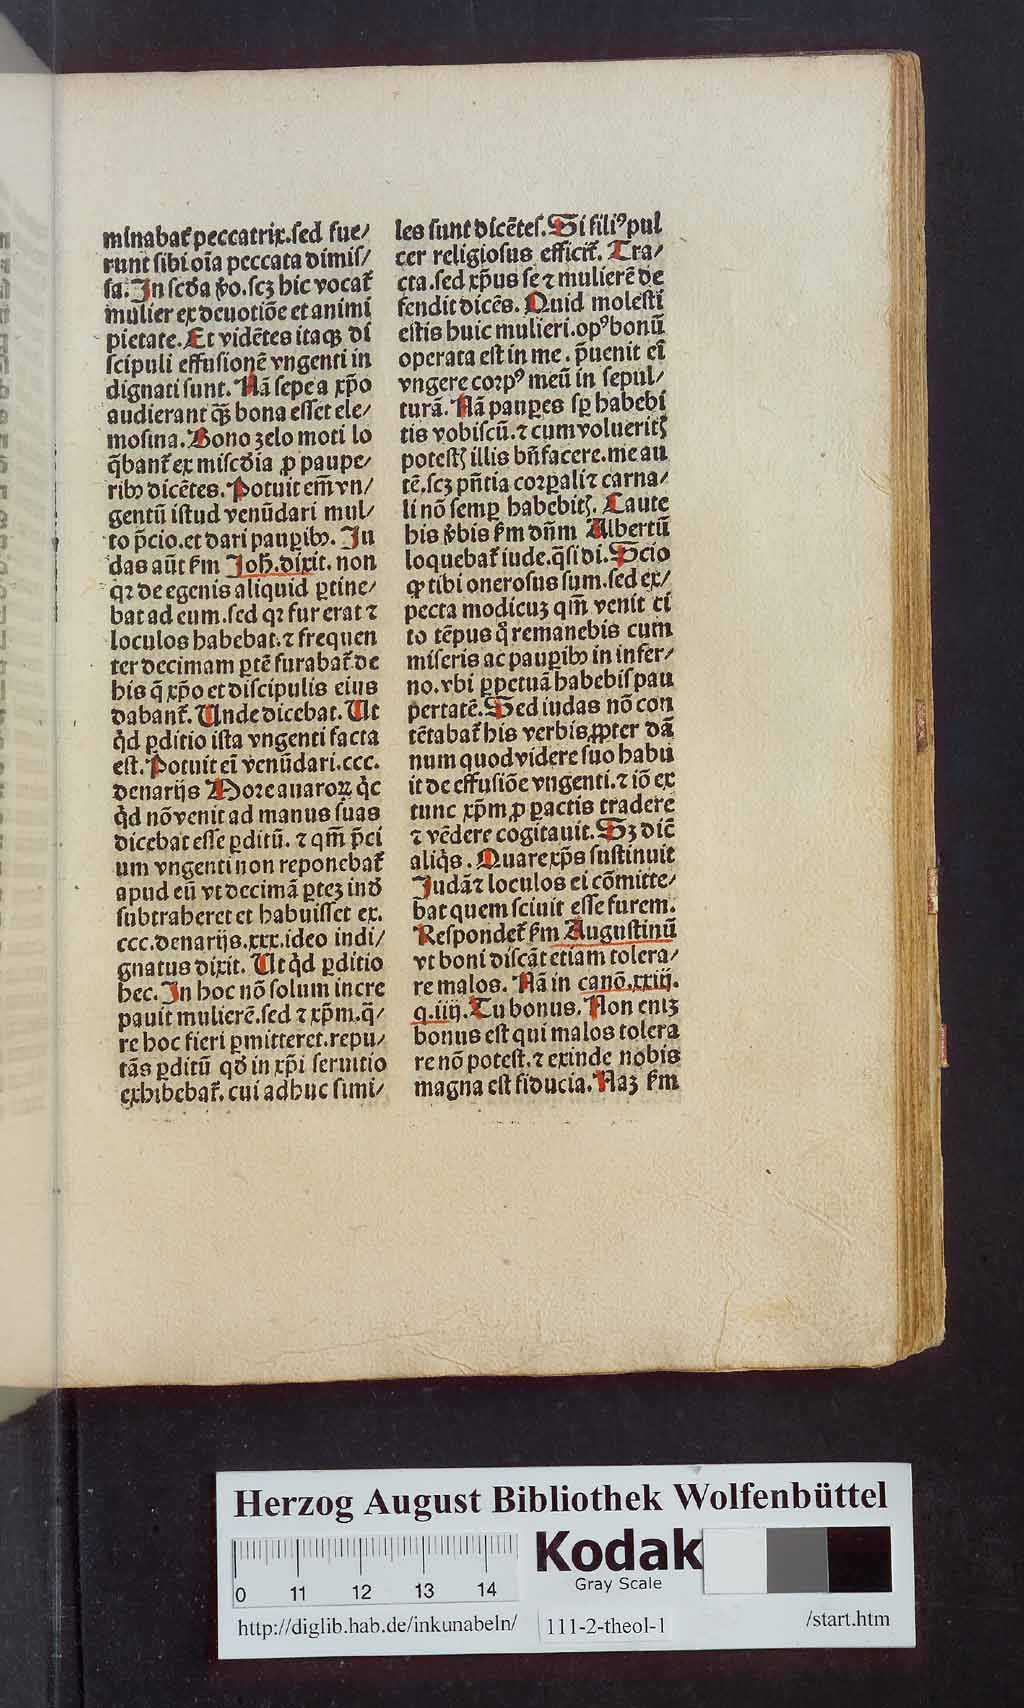 mlnabat᷑ peccatrix.ſed fue/
runt ſibi oīa peccata dimiſ/
ſa. In ſcd̄a ꝟo.ſcꝫ hic vocat᷑
mulier ex deuotiōe et animi
pietate. Et vidētes itaqꝫ di
ſcipuli effuſionē vngenti in
dignati ſunt. Nā ſepe a xp̄o
audierant qꝫ bona eſſet ele/
moſina. Bono zelo moti lo
q̄bant᷑ ex miſcd̄ia ꝓ paupe/
ribꝫ dicētes. Potuit em̄ vn/
gentū iſtud venūdari mul/
to p̄cio.et dari pauꝑibꝫ. Iu
das aūt ẜm Joh̄.dixit. non
qꝛ de egenis aliquid ꝑtine/
bat ad eum.ſed qꝛ fur erat ⁊
loculos habebat.⁊ frequen
ter decimam ꝑtē furabat᷑ de
his q̄ xp̄o et diſcipulis eius
dabant᷑. Unde dicebat. Ut
qͥd ꝑditio iſta vngenti facta
eſt. Potuit eī venūdari.ccc.
denarijs More auaroꝝ qͥc
qͥd nō venit ad manus ſuas
dicebat eſſe ꝑditū. ⁊ qm̄ p̄ci
um vngenti non reponebat᷑
apud eū vt decimā ꝑteꝫ ind̄
ſubtraheret et habuiſſet ex.
ccc.denarijs.xxx.ideo indi/
gnatus dixit. Ut qͥd ꝑditio
hec. In hoc nō ſolum incre
pauit mulierē.ſed ⁊ xp̄m.q̄/
re hoc fieri ꝑmitteret.repu/
tās ꝑditū qd̄ in xp̄i ſeruitio
exhibebat᷑. cui adhuc ſimi/
les ſunt dicēteſ. Si filiꝰ pul
cer religioſus efficit᷑. Tra/
cta.ſed xp̄us ſe ⁊ mulierē de
fendit dicēs. Quid moleſti
eſtis huic mulieri.opꝰ bonū
operata eſt in me. p̄uenit eī
vngere corpꝰ meū in ſepul/
turā. Nā pauꝑes ſꝑ habebi
tis vobiſcū.⁊ cum volueritꝭ
poteſtꝭ illis bn̄facere.me au
tē.ſcꝫ pn̄tia corꝑali ⁊ carna/
li nō ſemꝑ habebitꝭ. Caute
his ꝟbis ẜm dn̄m Albertū
loquebat᷑ iude.q̄ſi di. Scio
ꝙ tibi oneroſus ſum.ſed ex/
pecta modicuꝫ qm̄ venit ci
to tēpus qͦ remanebis cum
miſeris ac pauꝑibꝫ in infer/
no.vbi ꝑpetuā habebiſ pau
pertatē. Sed iudas nō con
tētabat᷑ his verbis ꝓpter dā
num quod videre ſuo habu
it de effuſiōe vngenti.⁊ iō ex
tunc xp̄m ꝓ pactis tradere
⁊ vēdere cogitauit. Sꝫ dic̄
aliqͥs. Quare xp̄s ſuſtinuit
Judā ⁊ loculos ei cōmitte/
bat quem ſciuit eſſe furem.
Reſpondet᷑ ẜm Auguſtinū
vt boni diſcāt etiam tolera/
re malos. Nā in canō.xxiij.
q.iiij. Tu bonus. Non eniꝫ
bonus eſt qui malos tolera
re nō poteſt.⁊ exinde nobis
magna eſt fiducia. Naꝫ ẜm
Herzog August Bibliothek Wolfenbüttel
0 11 12 13 14
Kodak
Gray Scale
http://diglib.hab.de/inkunabeln/ 111-2-theol-1 /start.htm